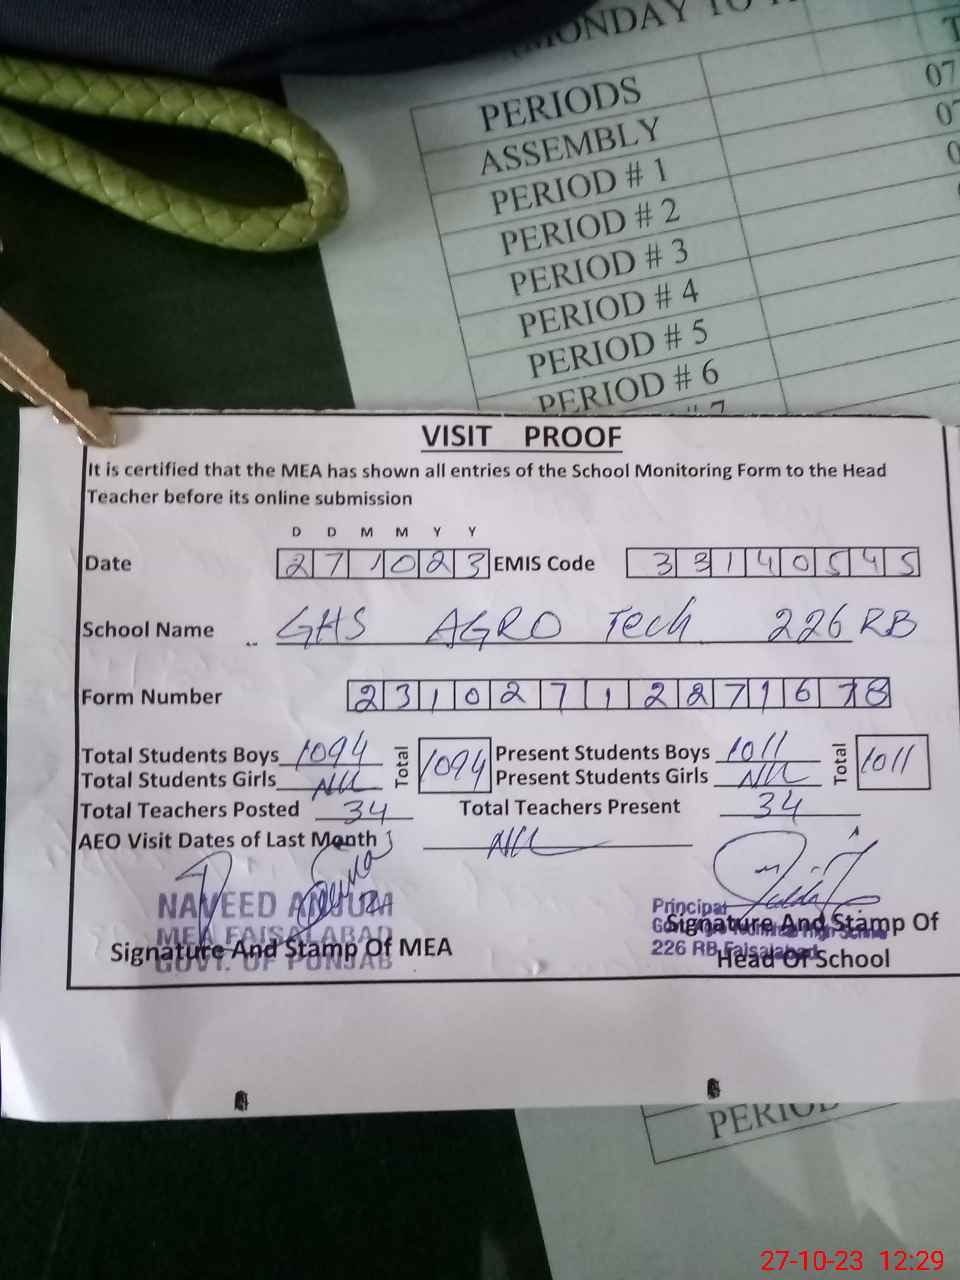 MONDAY TO
PERIODS
ASSEMBLY
PERIOD # 1
PERIOD # 2
PERIOD # 3
PERIOD # 4
PERIOD # 5
PERIOD # 6
# 7
VISIT PROOF
It is certified that the MEA has shown all entries of the School Monitoring Form to the Head
Teacher before its online submission
D D M M Y Y
Date 271023 EMIS Code 33140545
School Name GHS AGRO Tech 226 RB
Form Number 23102712271678
Total Students Boys 1094 Total 1094 Present Students Boys 1011 Total 1011
Total Students Girls Nil Present Students Girls Nil
Total Teachers Posted 34 Total Teachers Present 34
AEO Visit Dates of Last Month Nil
NAVEED ANJUM
MEA FAISALABAD
GOVT. OF PUNJAB
Signature And Stamp Of MEA
Principal
226 RB Faisalabad
Signature And Stamp Of
Head Of School
PERIOD
27-10-23 12:29